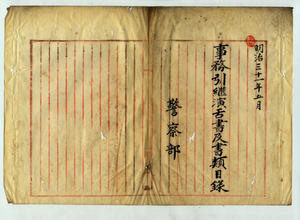 明治三十一年五月
事務引継演舌書及書類目録
警察部